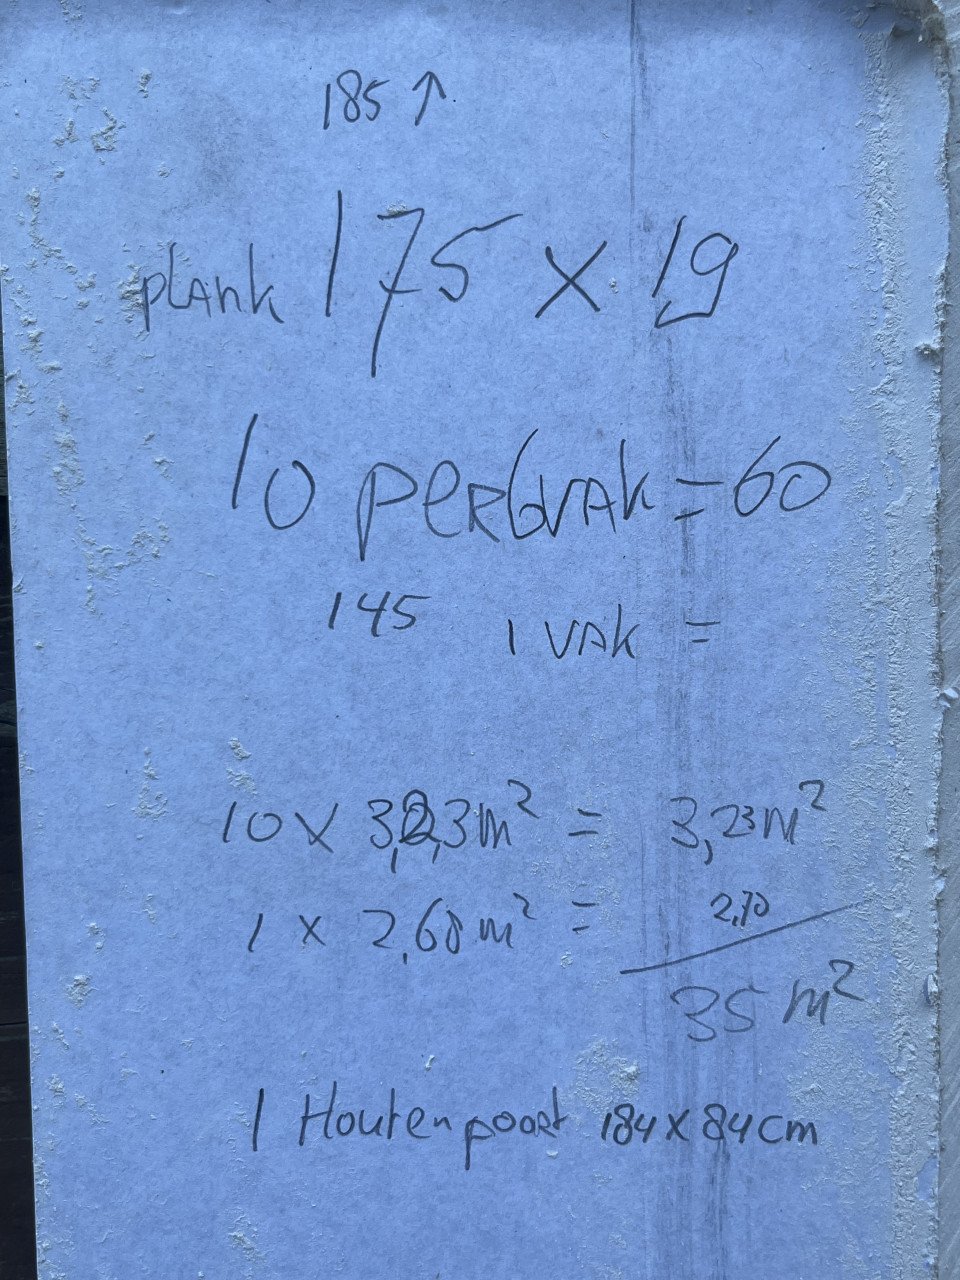 185 ↑
plank 175 x 19
10 per 6 vak = 60
145 1 vak =
10 x 3,23 m² = 3,23 m²
1 x 2,68 m² = 2,70
35 m²
1 Houten poort 184 x 84 cm